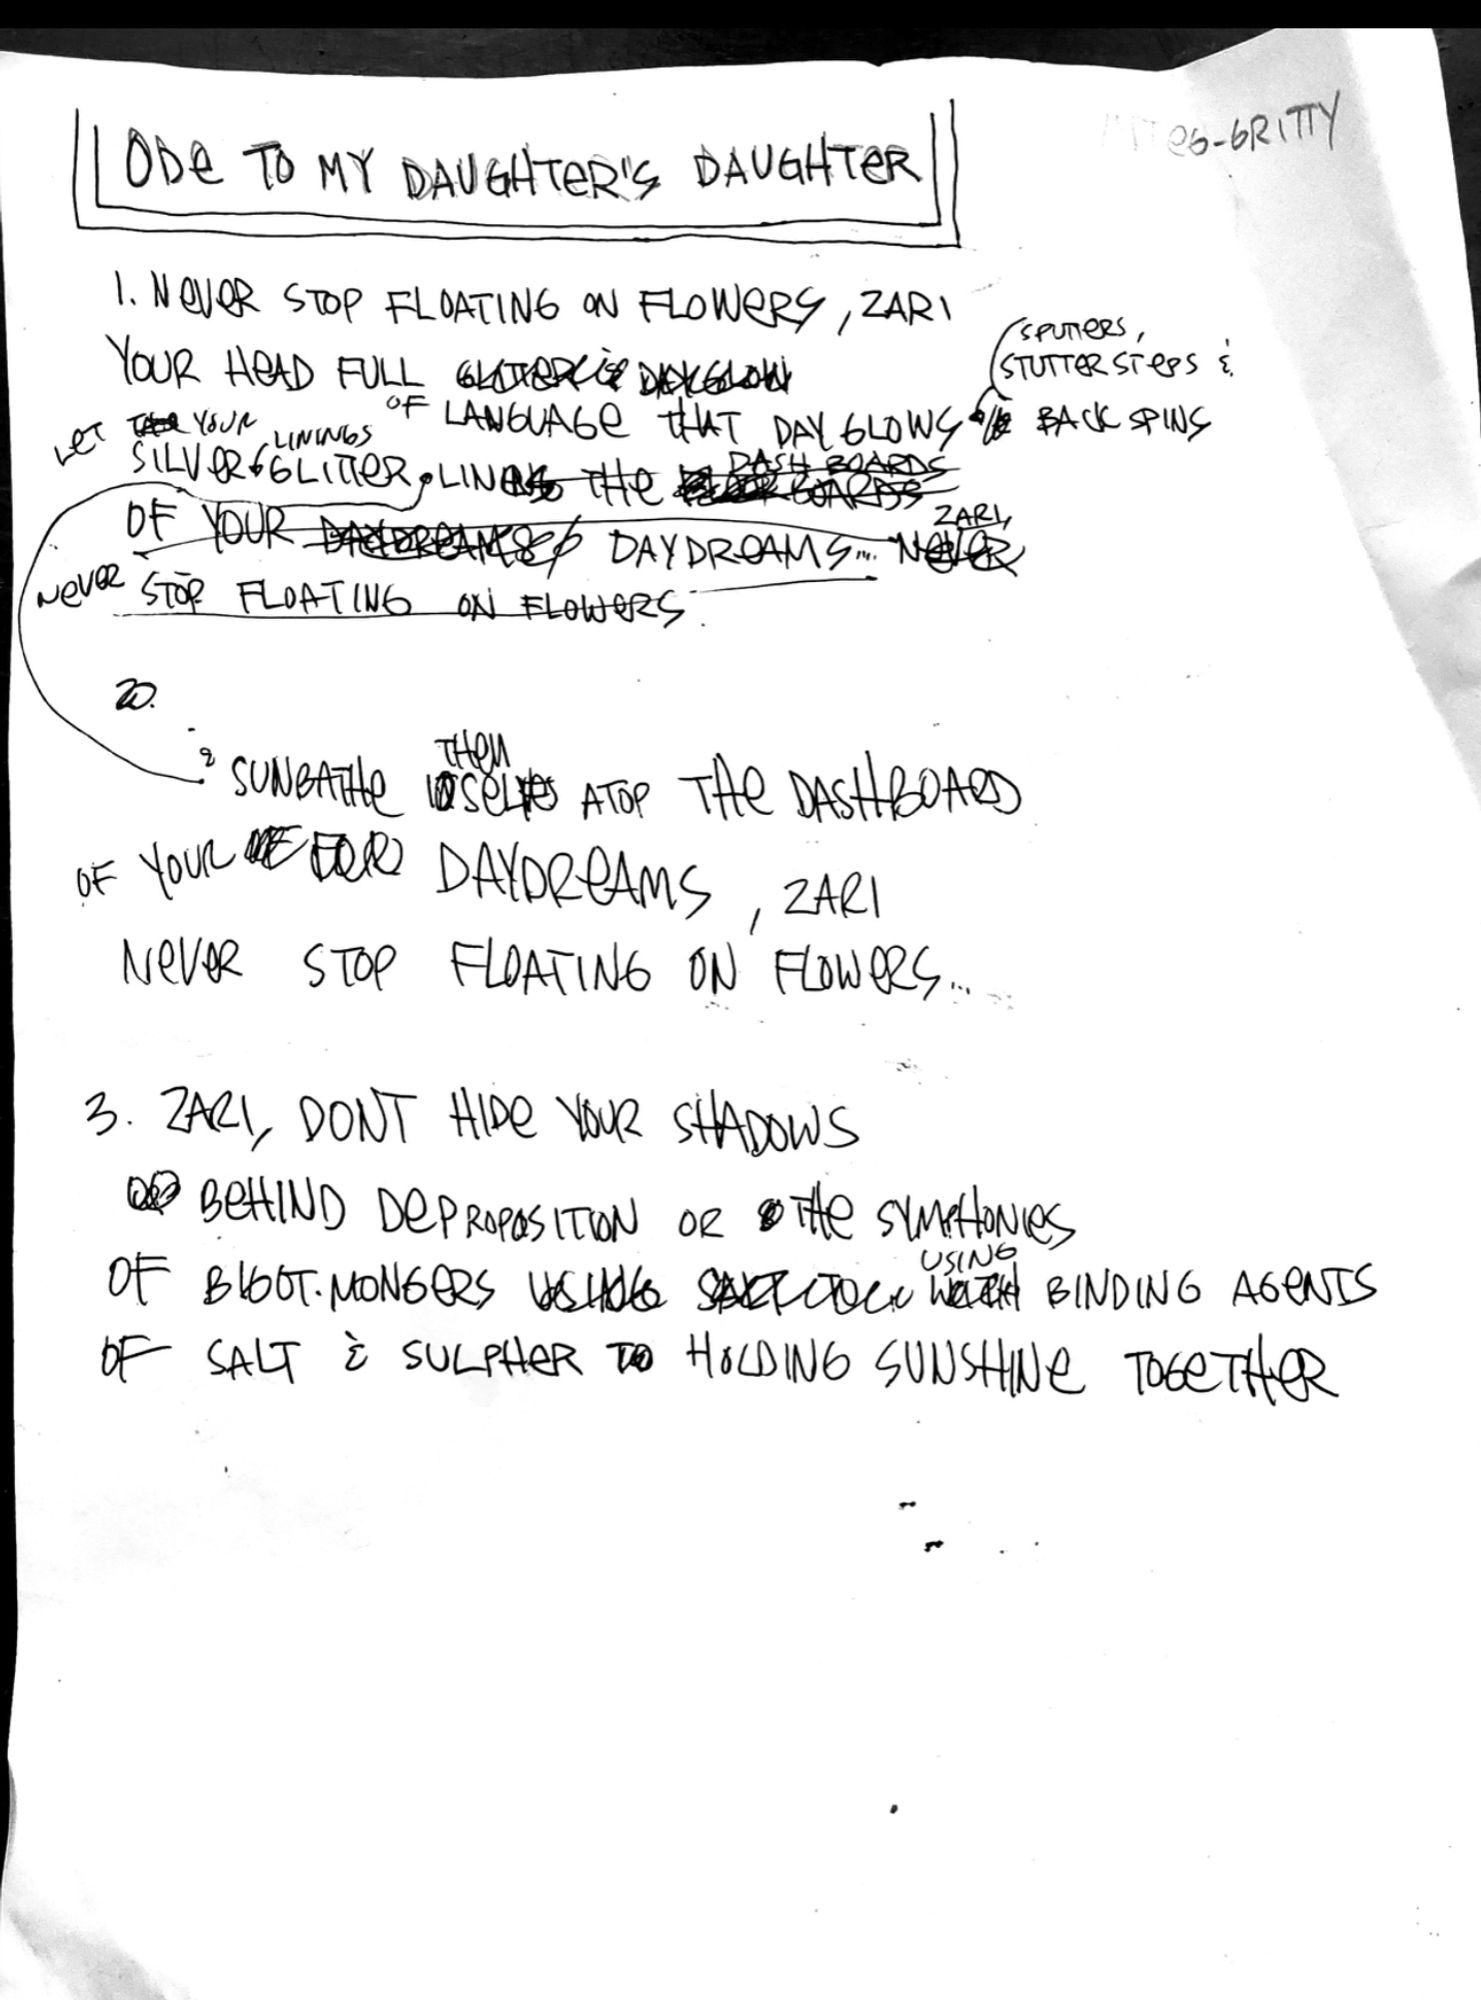 ODE TO MY DAUGHTER'S DAUGHTER
ES-GRITTY
1. NEVER STOP FLOATING ON FLOWERS, ZARI
SPUTTERS,
YOUR HEAD FULL GLITTER & DAYGLOW
STUTTER STEPS &
OF LANGUAGE THAT DAY GLOWS BACK SPINS
LET YOUR LININGS
SILVER & GLITTER LINES THE DASH BOARDS
OF YOUR DAYDREAMS DAYDREAMS... NEVER ZARI,
NEVER STOP FLOATING ON FLOWERS
2.
& SUNBATHE THEMSELVES ATOP THE DASHBOARD
OF YOUR DAYDREAMS, ZARI
NEVER STOP FLOATING ON FLOWERS...
3. ZARI, DONT HIDE YOUR SHADOWS
BEHIND DEPROPOSITION OR THE SYMPHONIES
USING
OF MONGERS USING WITH BINDING AGENTS
OF SALT & SULPHER TO HOLDING SUNSHINE TOGETHER